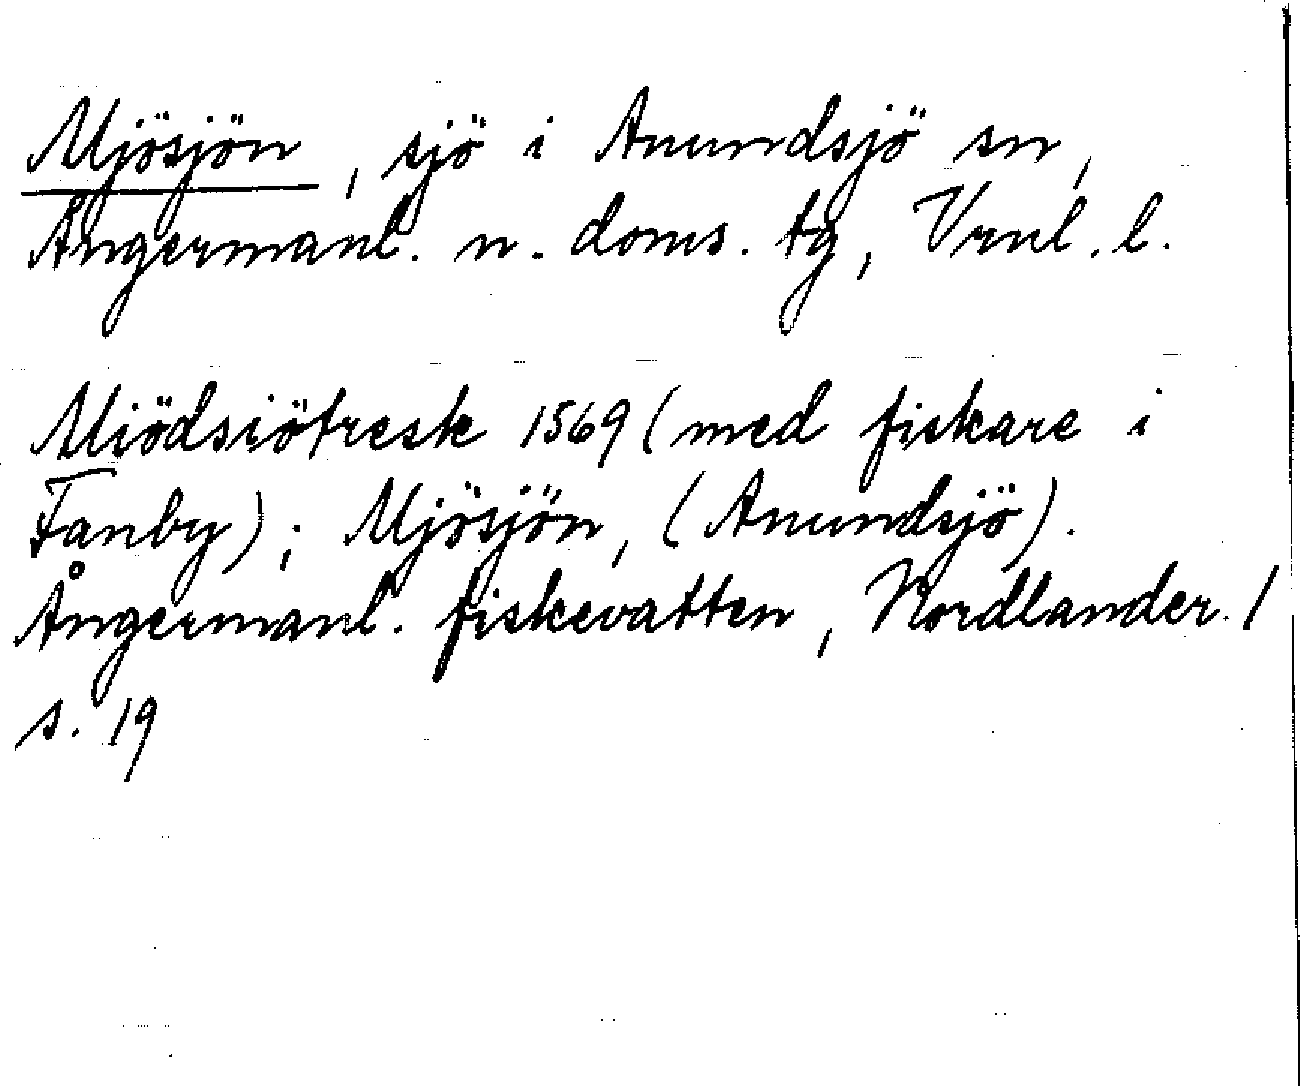 Mjösjön, sjö i Anundsjö sn,
Ångermanl. n. doms. tg, Vrnl. l.
Miödsiötresk 1569 (med fiskare i
Fanby); Mjösjön, (Anundsjö).
Ångermanl. fiskevatten, Nordlander. 1
s. 19